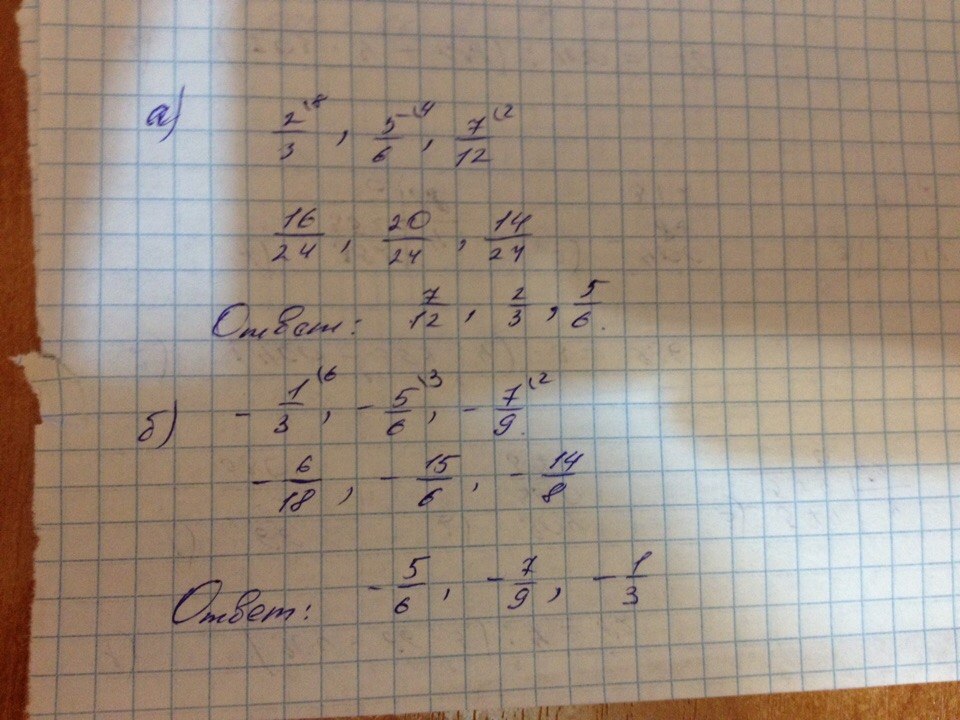 а) 2/3 (8, 5/6 (4, 7/12 (2
16/24, 20/24, 14/24
Ответ: 7/12, 2/3, 5/6.
б) - 1/3 (6, - 5/6 (3, - 7/9 (2
- 6/18, - 15/6, - 14/8
Ответ: - 5/6, - 7/9, - 1/3